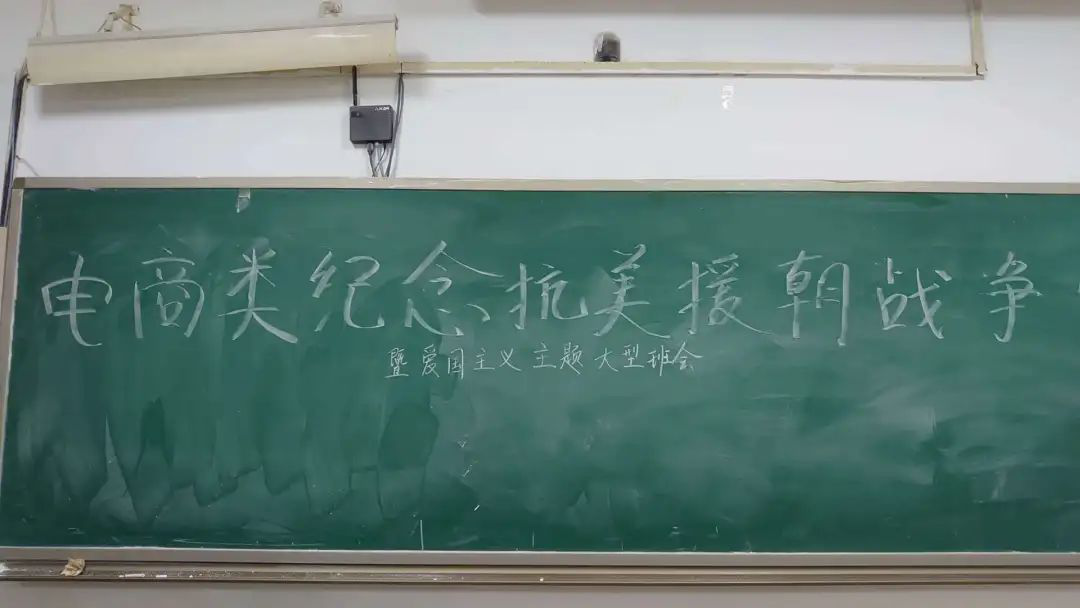 电商类纪念抗美援朝战争
暨爱国主义主题大型班会